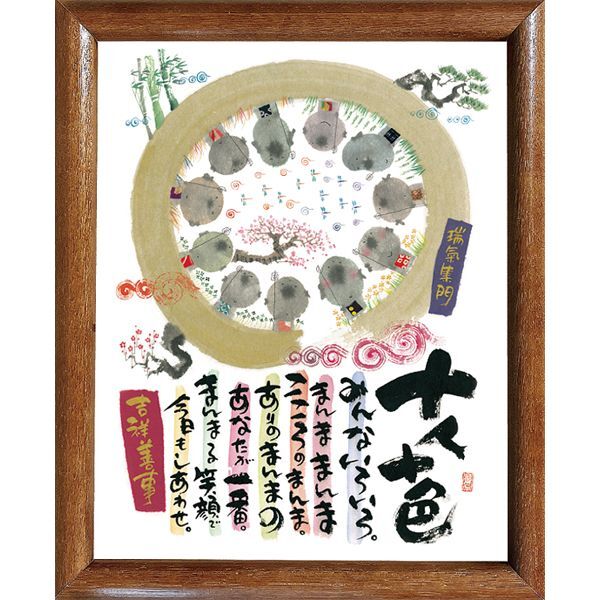 十人十色
みんないろいろ。
まんま まんま
こころのまんま。
ありのまんまの
あなたが一番。
まんまる笑顔で
今日もしあわせ。
瑞氣集門
吉祥善事